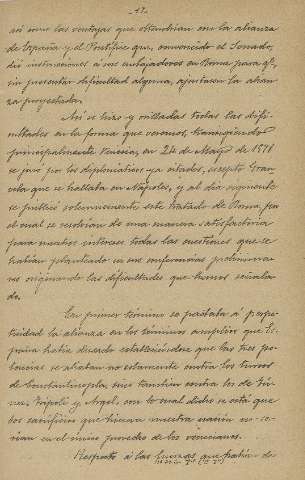 - 42 -
así como las ventajas que obtendrían con la alianza
de España y el Pontífice que, convencido el Senado,
dió instrucciones á sus embajadores en Roma para qe,
sin presentar dificultad alguna, ajustasen la alian-
za proyectada.
Así se hizo y orilladas todas las difi-
cultades en la forma que veremos, transigiendo
principalmente Venecia, en 24 de Mayo de 1571
se juró por los diplomáticos ya citados, excepto Gran-
vela que se hallaba en Nápoles, y al día siguiente
se publicó solemnemente este tratado de Roma, por
el cual se resolvían de una manera satisfactoria
para muchos intereses todas las cuestiones que se
habían planteado en sus conferencias prelimina-
res originando las dificultades que hemos señala-
do.
En primer término se pactaba á perpe-
tuidad la alianza en los términos amplios que Es-
paña había deseado estableciéndose que las tres po-
tencias se aliaban no solamente contra los turcos
de Constantinopla, sino también contra los de Tú-
nez, Trípoli y Argel, con lo cual dicho se está que
los sacrificios que hiciera nuestra nación no se-
rían en el único provecho de los venecianos.
Respecto á las fuerzas que habían de